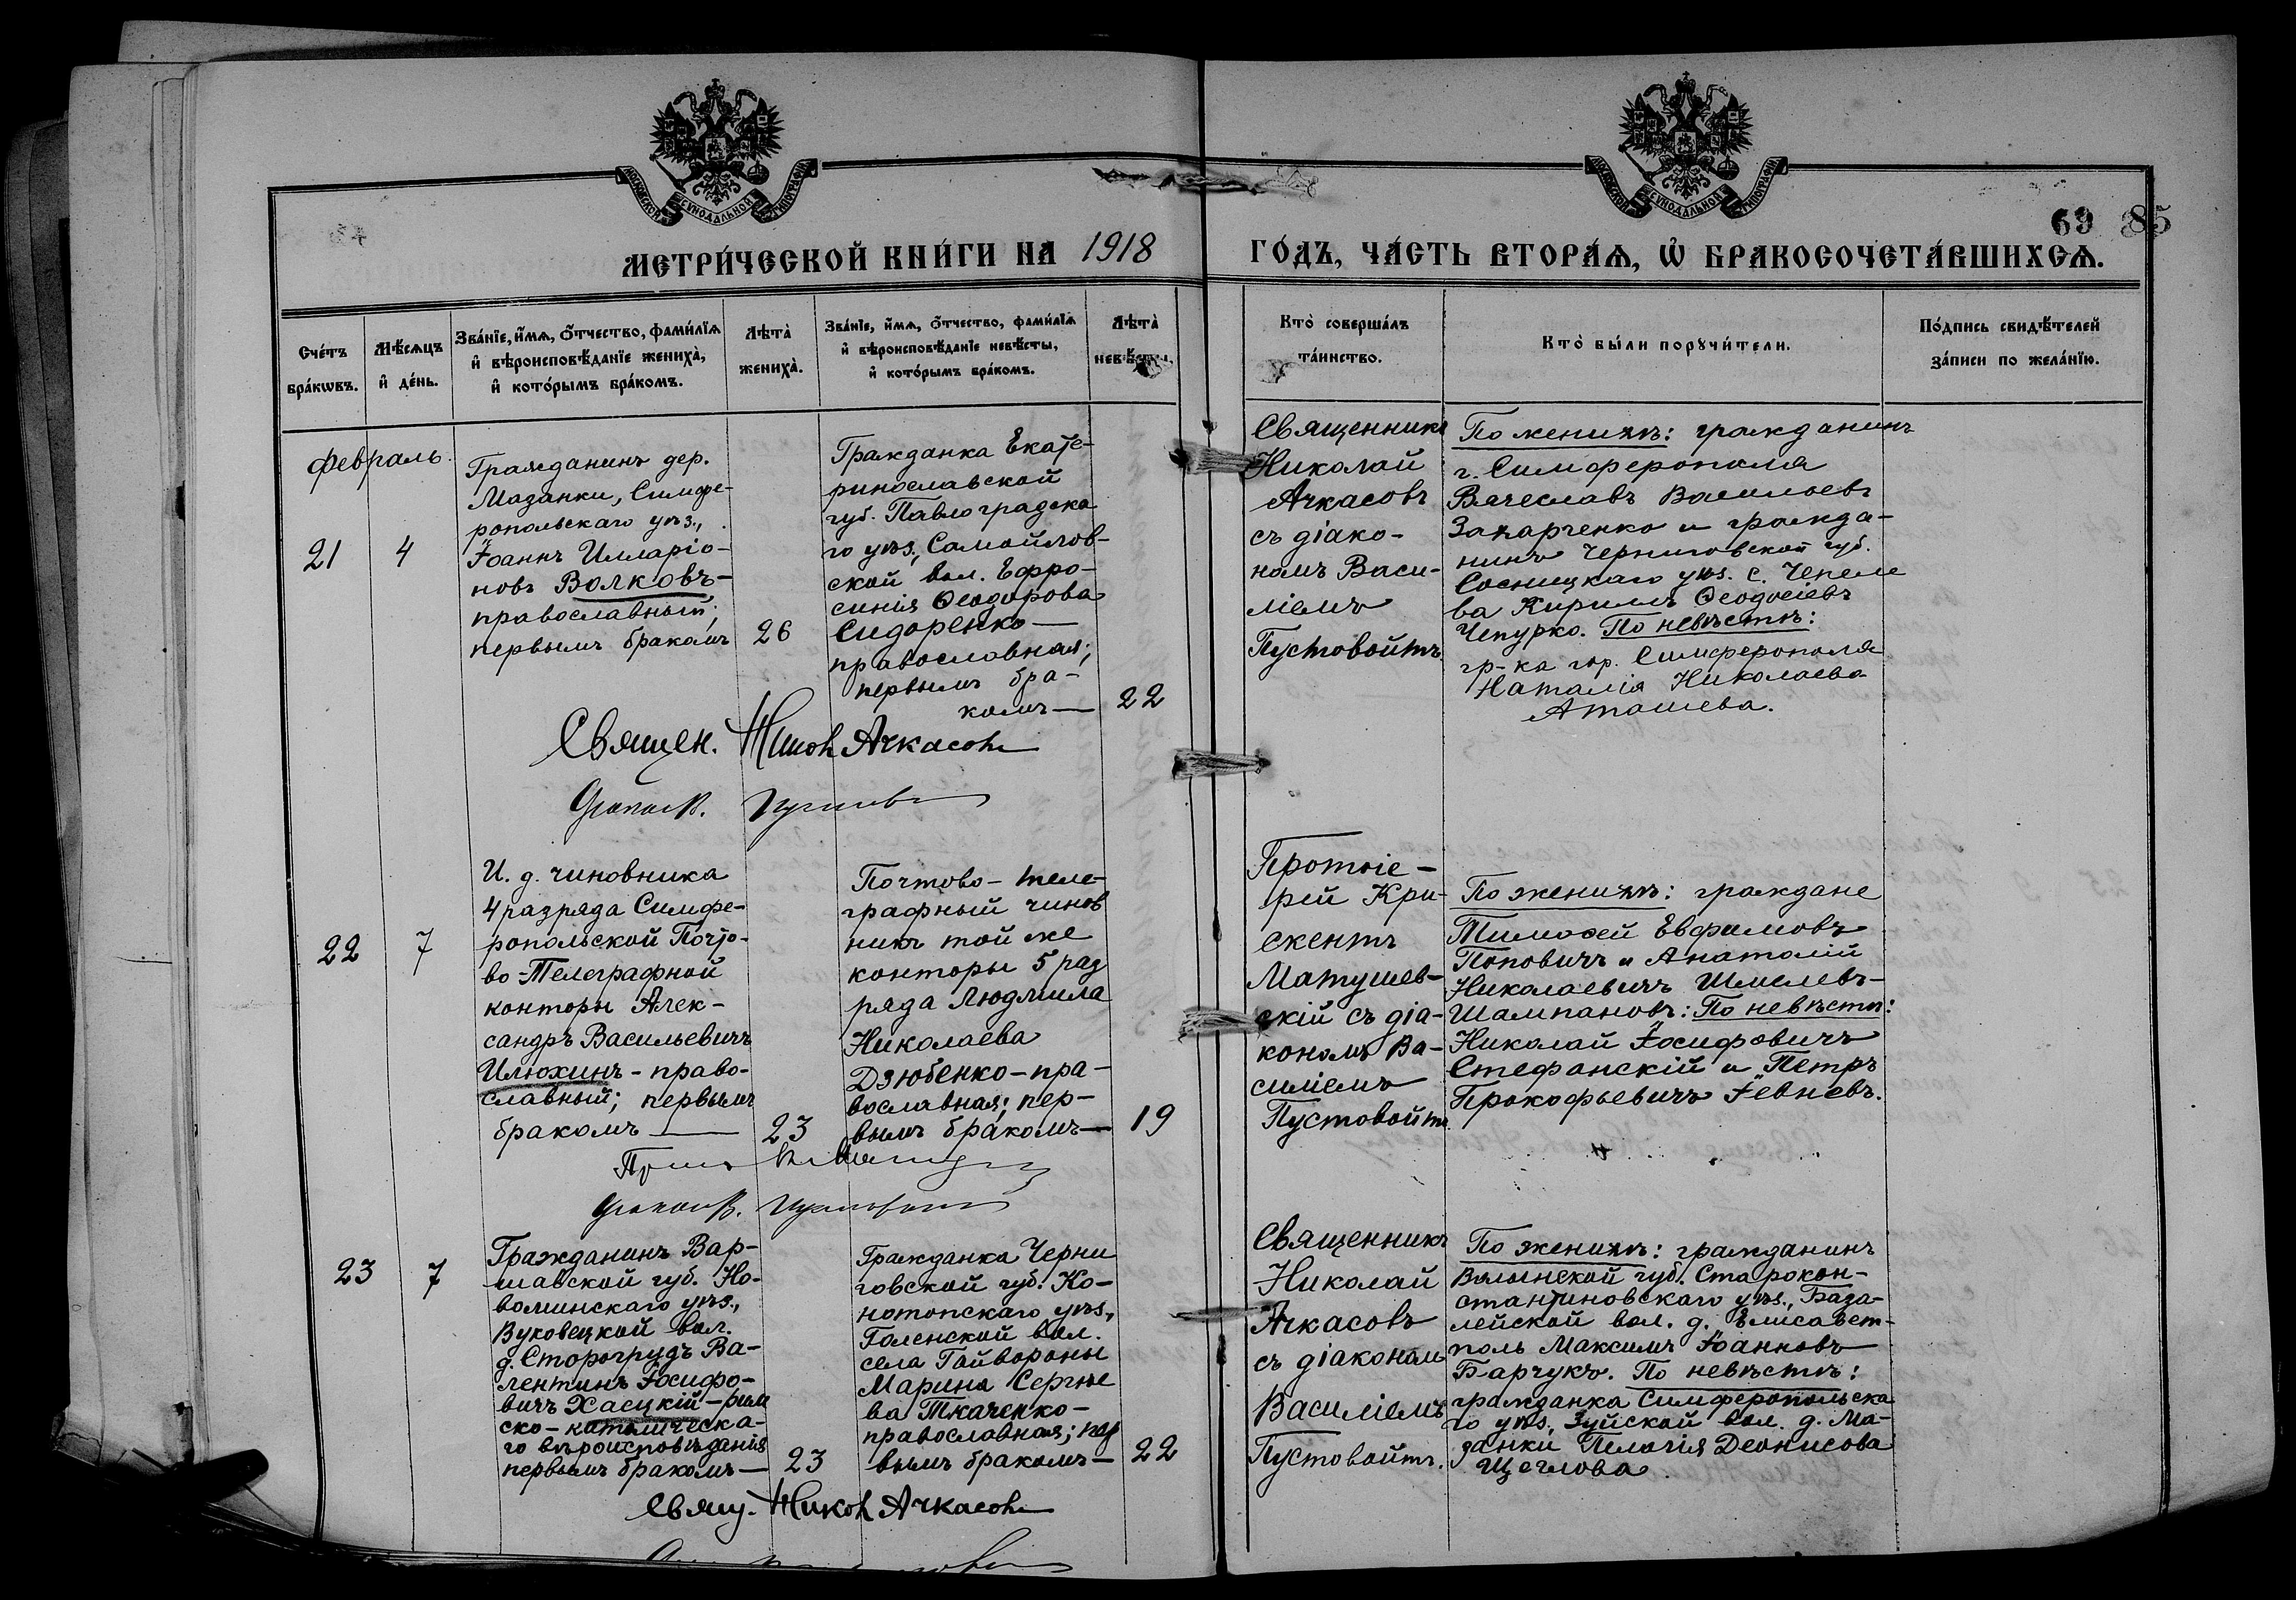 МОСКОВСКОЙ СѴНОДАЛЬНОЙ ТИПОГРАФІИ
МОСКОВСКОЙ СѴНОДАЛЬНОЙ ТИПОГРАФІИ
69 85
МЕТРИ́ЧЕСКОЙ КНИ́ГИ НА 1918
ГО́ДЪ, ЧА́СТЬ ВТОРА́Ѧ, Ѡ҆ БРАКОСОЧЕТА́ВШИХСѦ.
Сче́тъ бра́кѡвъ.
Мѣ́сѧцъ и҆ де́нь.
Зва́нїе, и҆́мѧ, ѻ҆́тчество, фами́лїѧ
и҆ вѣроисповѣ́данїе жениха̀,
и҆ кото́рымъ бра́комъ.
Лѣта̀ жениха̀.
Зва́нїе, и҆́мѧ, ѻ҆́тчество, фами́лїѧ
и҆ вѣроисповѣ́данїе невѣ́сты,
и҆ кото́рымъ бра́комъ.
Лѣта̀ невѣ́сты.
Кто̀ соверша́лъ
та́инство.
Кто̀ бы́ли порꙋчи́тели.
По́дпись свидѣ́телей
за́писи по жела́нїю.
февраль
21
4
Гражданинъ дер.
Мазанки, Симфе-
ропольскаго уѣз.,
Іоаннъ Илларіо-
новъ Волковъ-
православный;
первымъ бракомъ
26
Гражданка Екате-
ринославской
губ. Павлоградска
го уѣз., Самойлов-
ской вол. Ефро-
синія Ѳеодорова
Сидоренко-
православная;
первымъ бра-
комъ-
22
Священникъ
Николай
Ачкасовъ
съ діако-
номъ Васи-
ліемъ
Пустовойтъ
По женихѣ: гражданинъ
г. Симферополя
Вячеславъ Васильевъ
Захарченко и гражда-
нинъ Черниговской губ.
Сосницкаго уѣз. с. Чепеле
ва Кирилъ Ѳеодосіевъ
Чепурко. По невѣстѣ:
гр-ка гор. Симферополя
Наталія Николаева
Аташева.
Священ. Никол Ачкасовъ
22
7
И. д. чиновника
4 разряда Симфе-
ропольской Почто-
во-Телеграфной
конторы Алек-
сандръ Васильевичъ
Илюхинъ - право-
славный; первымъ
бракомъ
23
Почтово-теле-
графный чинов
никъ той же
конторы 5 раз
ряда Людмила
Николаева
Дзюбенко-пра-
вославная; пер-
вымъ бракомъ-
19
Протоіе-
рей Кри-
скентъ
Матушев-
скій съ діа-
кономъ Ва-
силіемъ
Пустовойтъ
По женихѣ: граждане
Тимоѳей Евфимовъ
Поповичъ и Анатолій
Николаевичъ Шмелевъ-
Шампановъ: По невѣстѣ:
Николай Іосифовичъ
Стефанскій и Петръ
Прокофьевичъ Іевневъ.
23
7
Гражданинъ Вар-
шавской губ. Но-
воминскаго уѣз.,
Вуковецкой вол.
д. Сторогрудъ Ва-
лентинъ Іосифо-
вичъ Хасцкій-рим
ско-католическа-
го вѣроисповѣданія
первымъ бракомъ-
23
Гражданка Черни
говской губ. Ко-
нотопскаго уѣз.,
Голенской вол.
села Гайвороны
Марина Сергѣе
ва Ткаченко-
православная; пер
вымъ бракомъ-
22
Священникъ
Николай
Ачкасовъ
съ діакономъ
Василіемъ
Пустовойтъ.
По женихѣ: гражданинъ
Волынской губ. Старокон-
стантиновскаго уѣз., База-
лейской вол. д. Елисавет-
поль Максимъ Іоанновъ
Барчукъ. По невѣстѣ:
гражданка Симферопольска
го уѣз. Зуйской вол. д. Ма-
занки Пелагія Деонисова
Щеглова.
Свящ. Никол Ачкасовъ